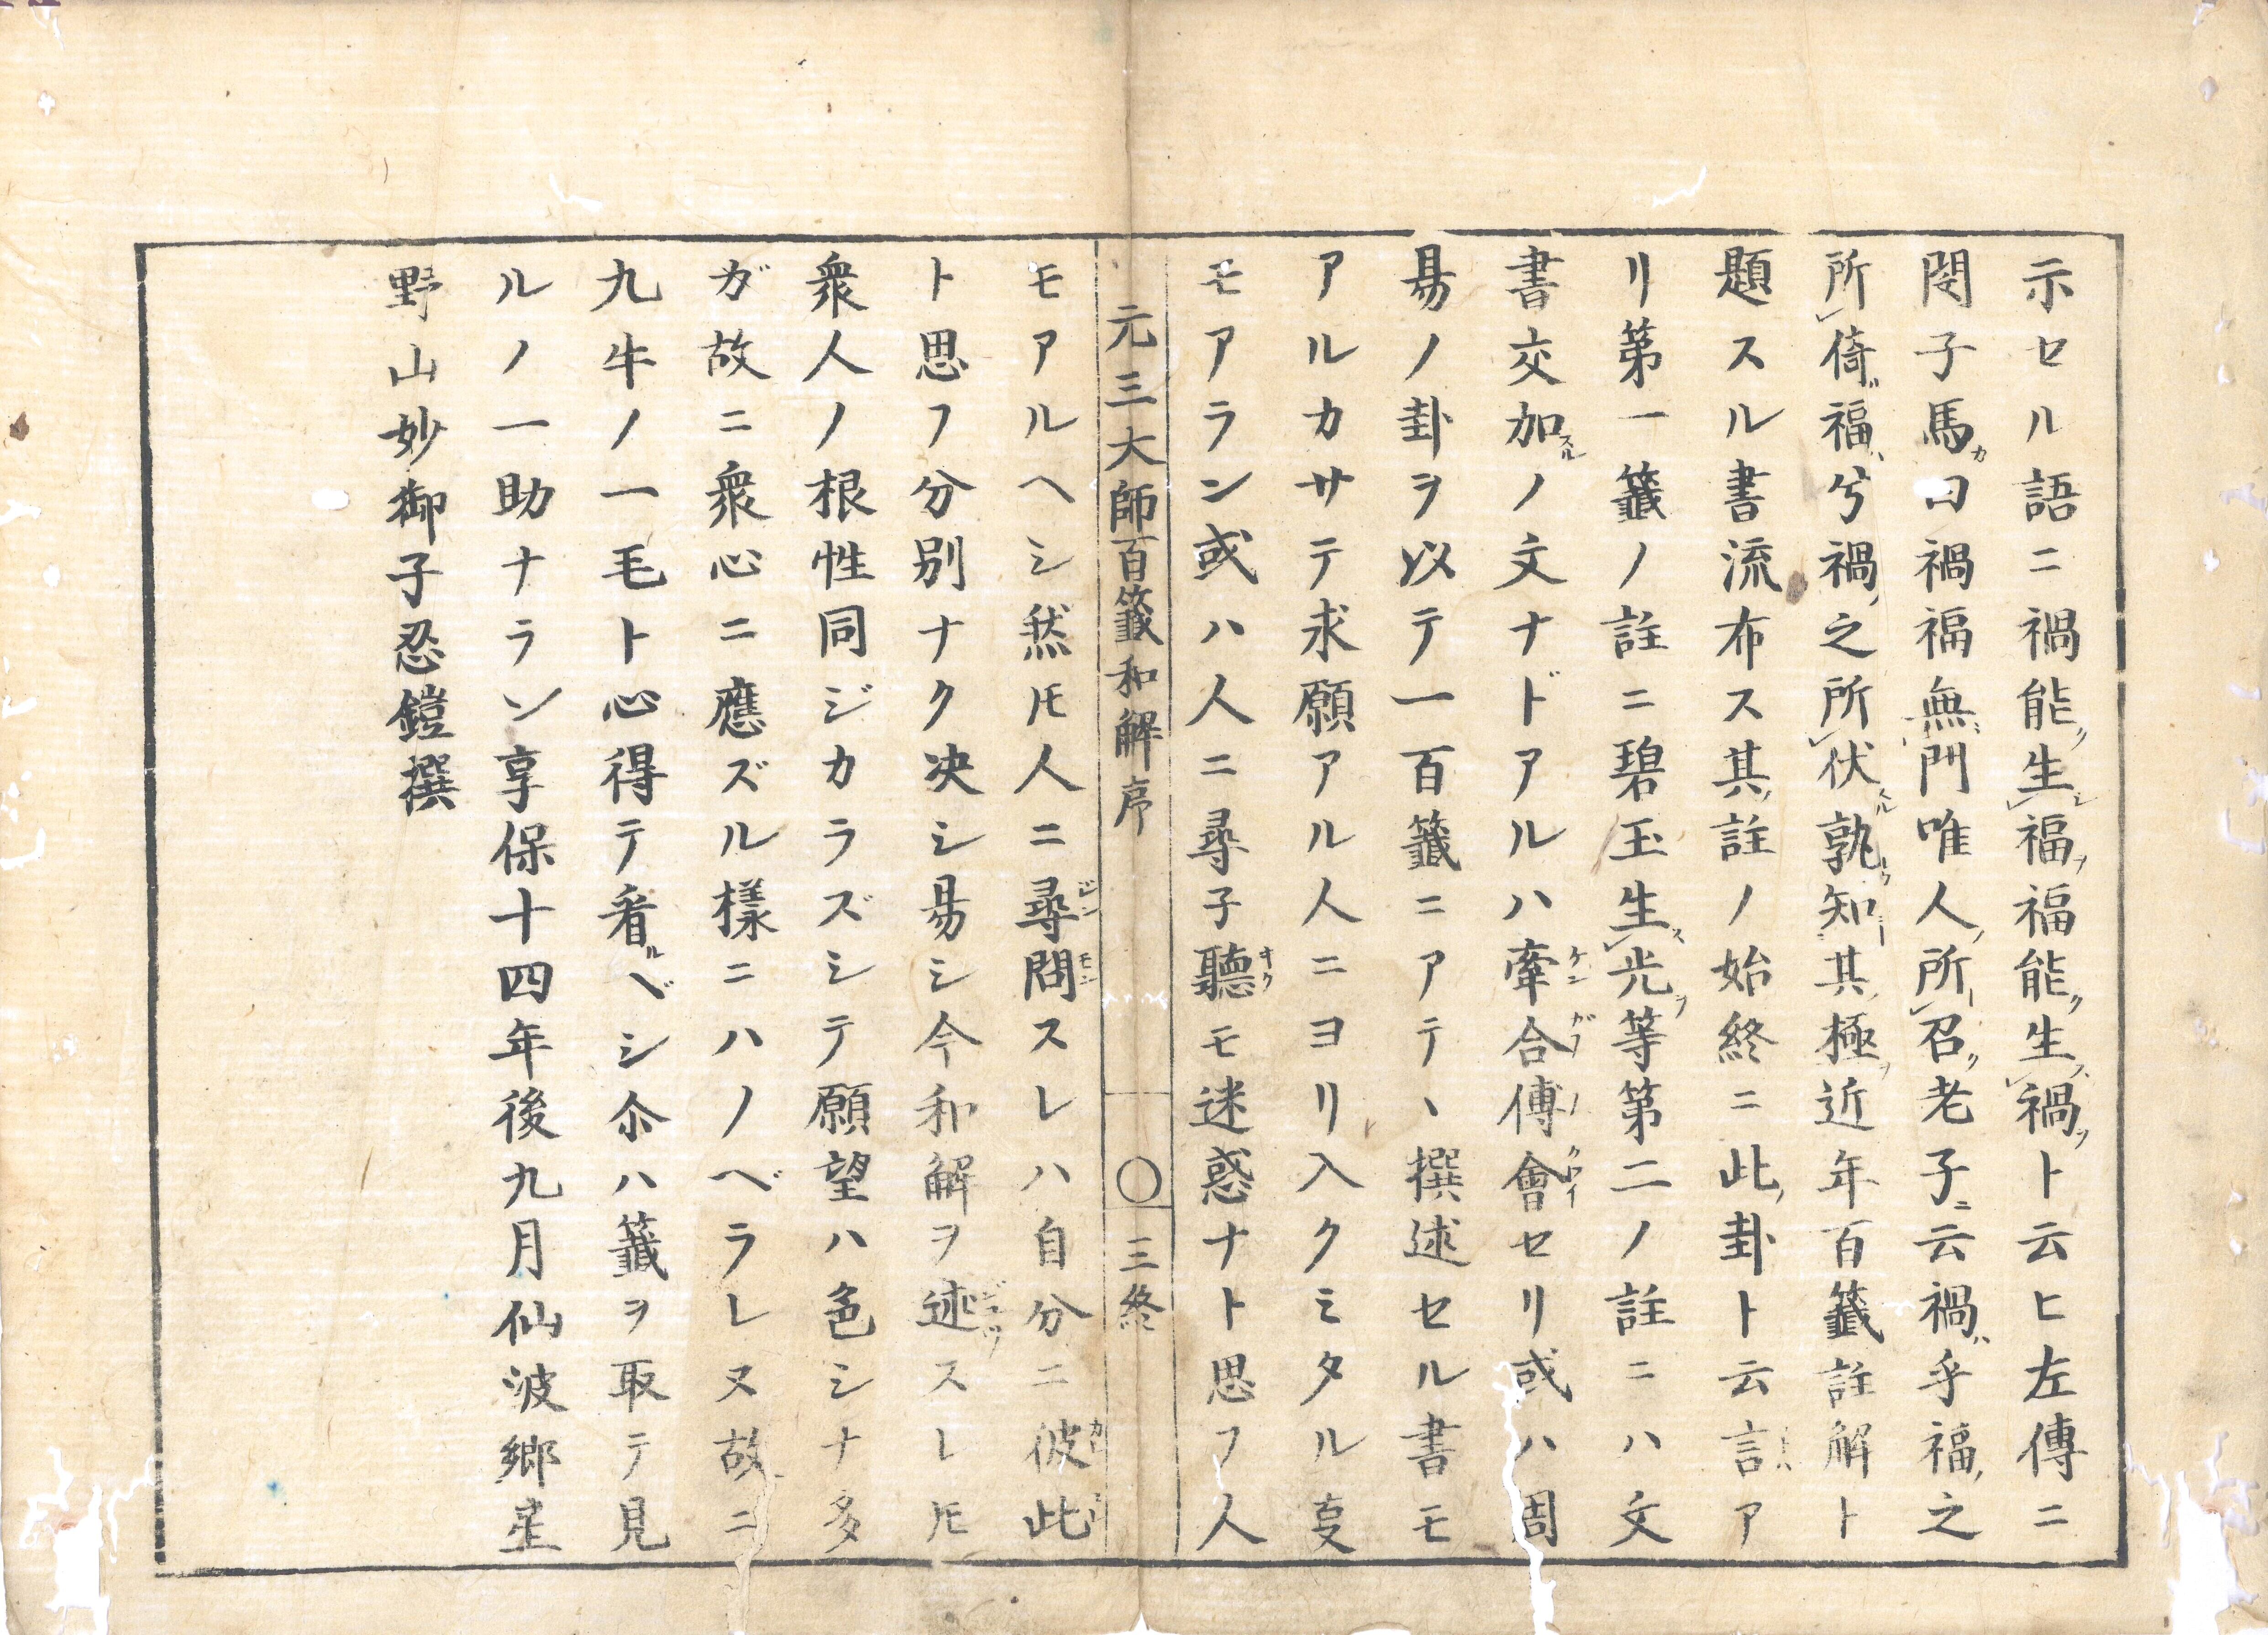 示セル語ニ禍能生福福能生禍ト云ヒ左傳ニ
閔子馬曰禍福無門唯人所召老子云禍乎福之
所倚福兮禍之所伏孰知其極近年百籤註解ト
題スル書流布ス其註ノ始終ニ此卦ト云言ア
リ第一籤ノ註ニ碧玉生光等第二ノ註ニハ文
書交加ノ文ナドアルハ牽合傅會セリ或ハ周
易ノ卦ヲ以テ一百籤ニアテヽ撰述セル書モ
アルカサテ求願アル人ニヨリ入クミタル叓
モアラン或ハ人ニ尋子聽モ迷惑ナト思フ人
元三大師百籤和解序 〇三終
モアルヘシ然𪜈人ニ尋問スレハ自分ニ彼此
ト思フ分別ナク决シ易シ今和解ヲ述スレ𪜈
衆人ノ根性同ジカラズシテ願望ハ色シナ多
ガ故ニ衆心ニ應ズル樣ニハノベラレヌ故ニ
九牛ノ一毛ト心得テ看ベシ尒ハ籤ヲ取テ見
ルノ一助ナラン享保十四年後九月仙波郷星
野山妙御子忍鎧撰